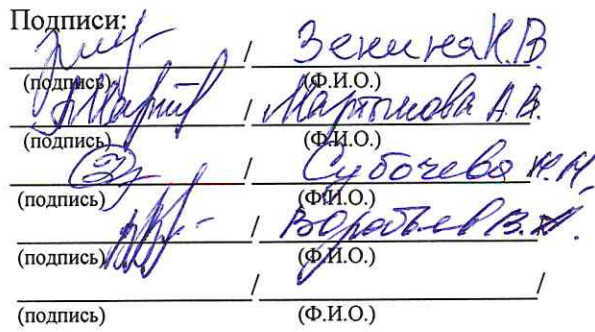 Подписи:
/ Зенина Н.В.
(подпись) (Ф.И.О.)
/ Мартынова А.В.
(подпись) (Ф.И.О.)
/ Субочева Н.Н.
(подпись) (Ф.И.О.)
/ Воробьев В.А.
(подпись) (Ф.И.О.)
/ /
(подпись) (Ф.И.О.)